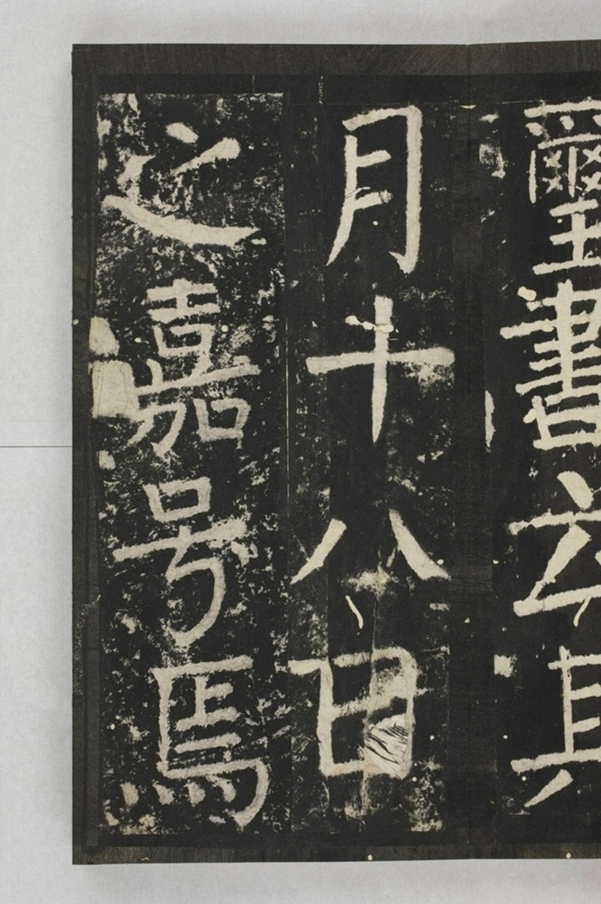 璽書云其
月十八日
之嘉号焉